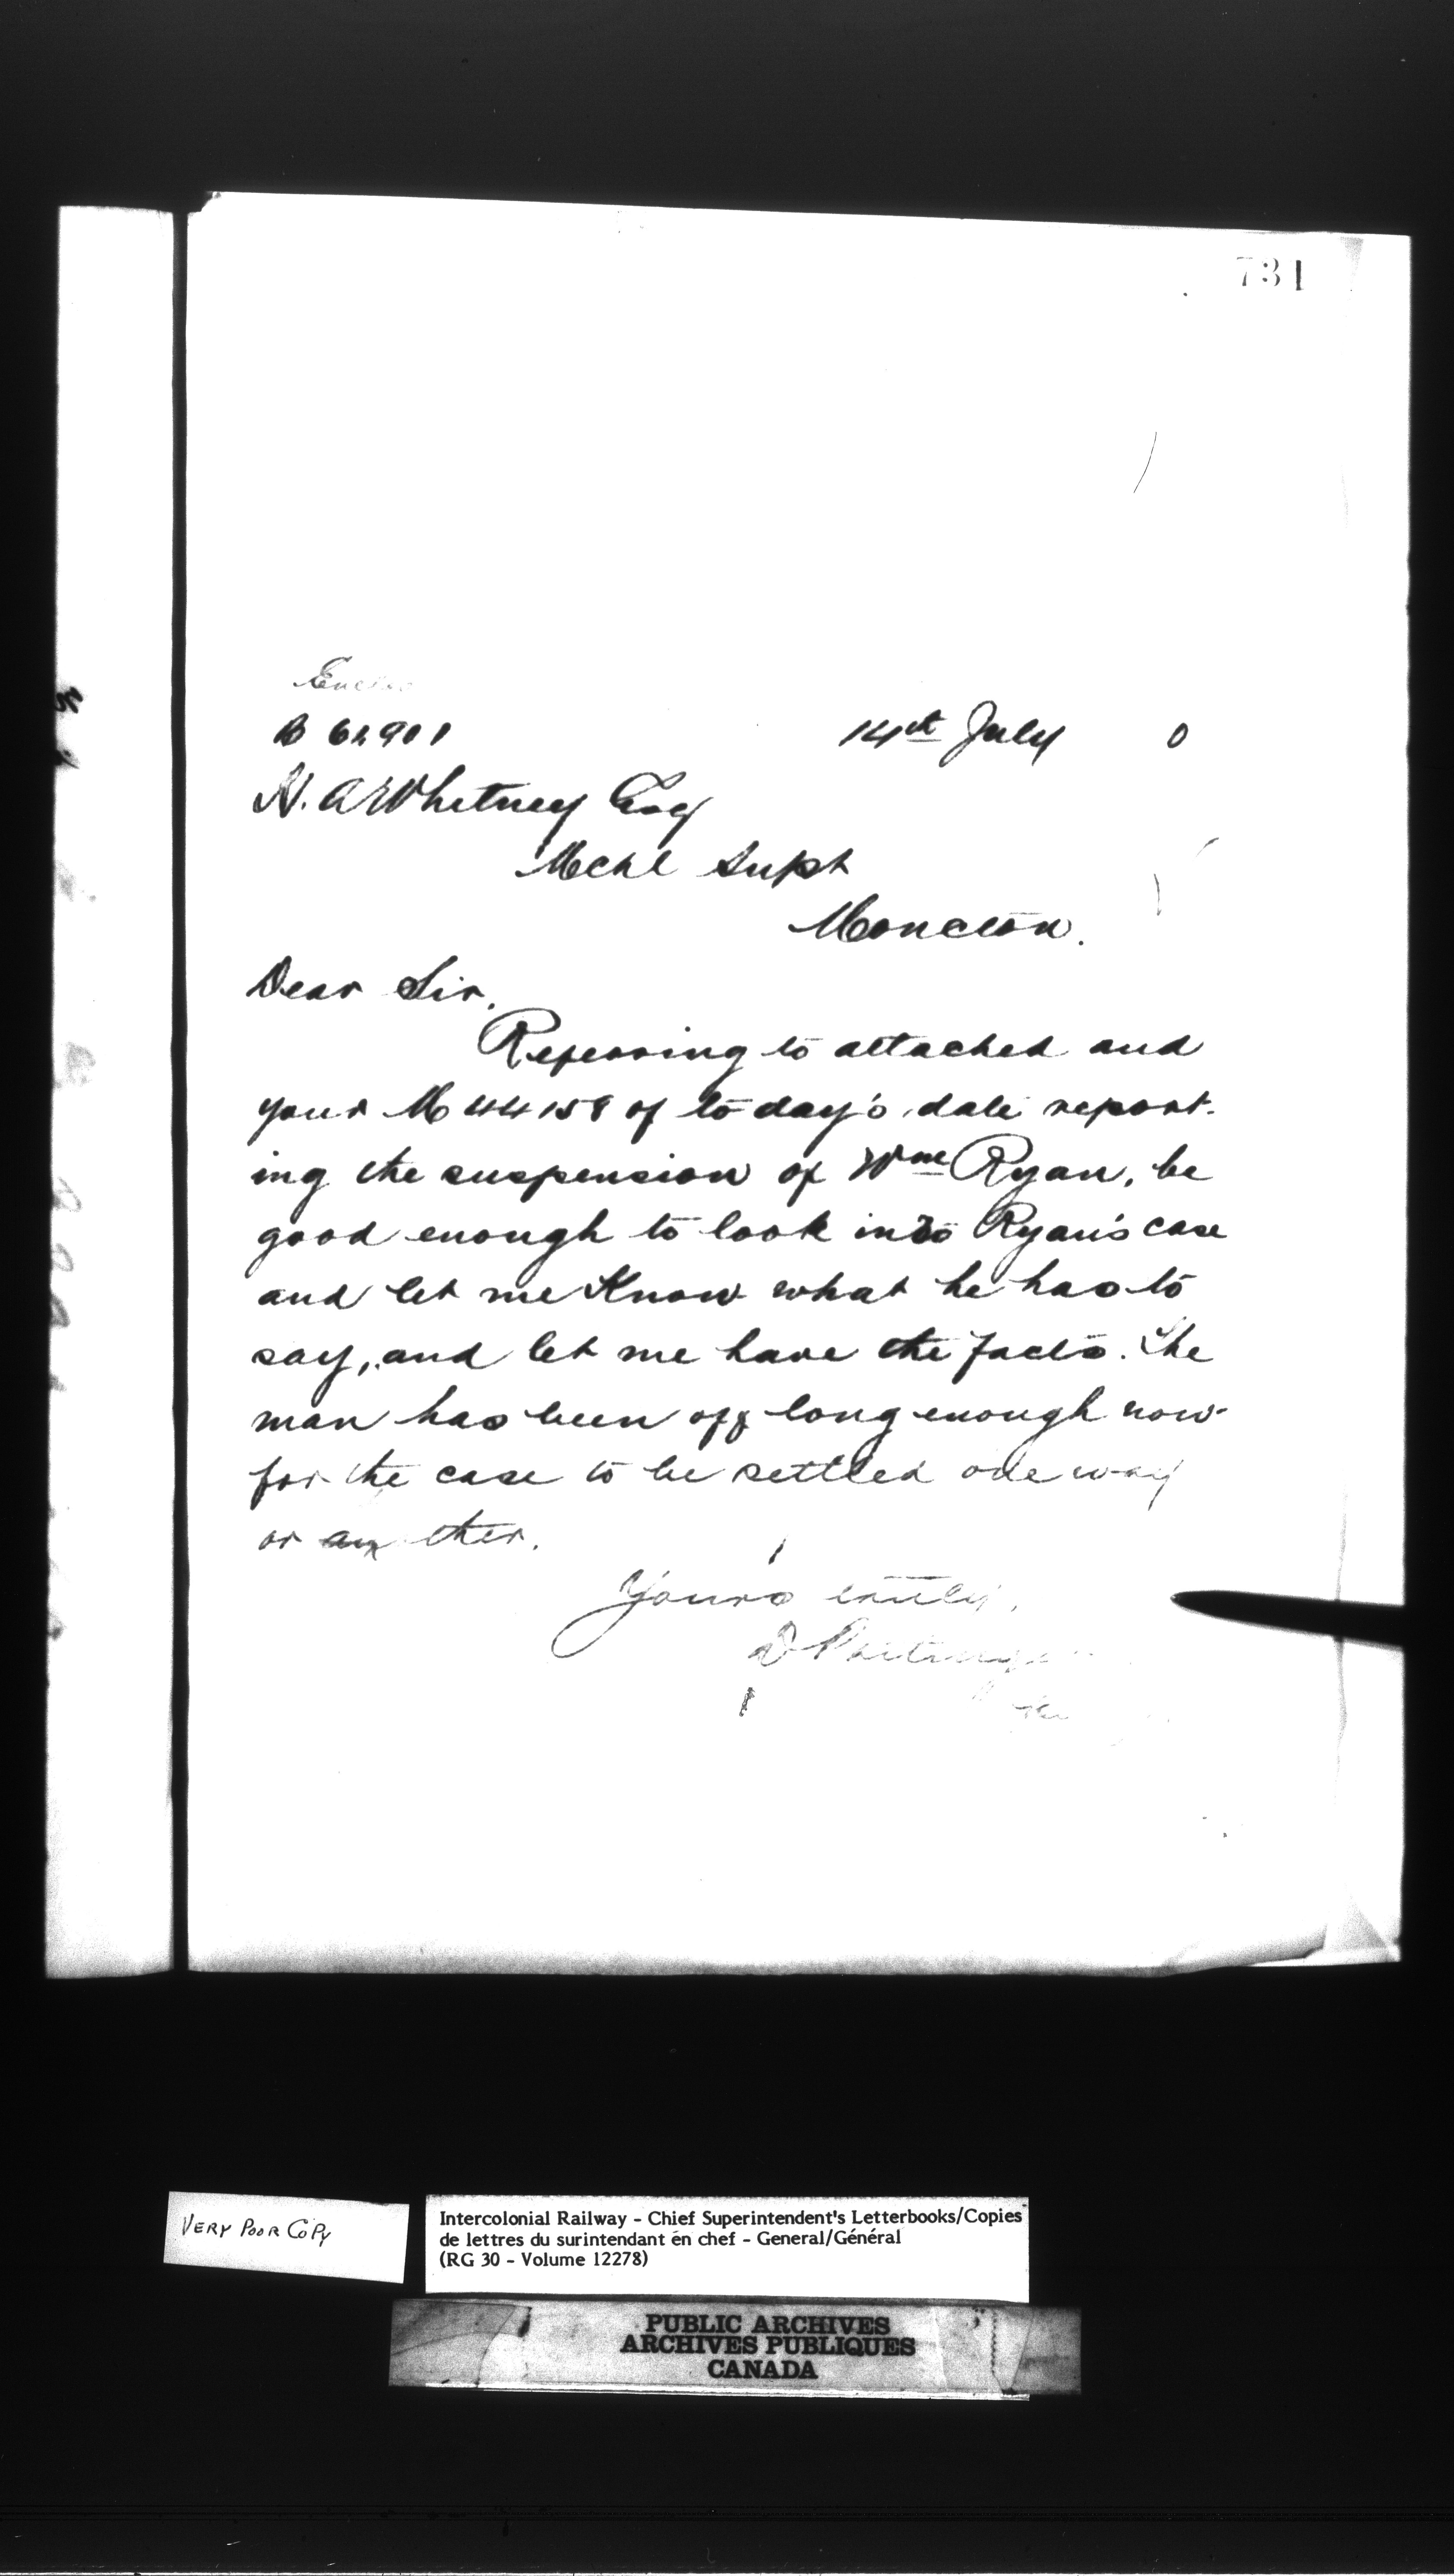 731
14th July 0
H. A Whitney Esq
Mchl Supt
Moncton.
Dear Sir,
Referring to attached and
your M 44158 of to day's date report-
ing the suspension of Wm Ryan, be
good enough to look into Ryan's case
and let me Know what he has to
say, and let me have the facts. The
man has been off long enough now
for the case to be settled one way
or another.
Yours truly,
D Pottinger
VERY POOR COPY
Intercolonial Railway - Chief Superintendent's Letterbooks/Copies
de lettres du surintendant en chef - General/Général
(RG 30 - Volume 12278)
PUBLIC ARCHIVES
ARCHIVES PUBLIQUES
CANADA